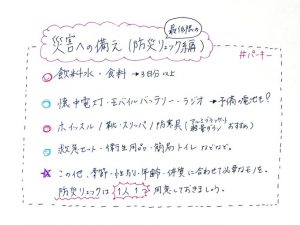 最低限の
災害への備え (防災リュック編)
#パーキー
飲料水・食料 → 3日分以上
懐中電灯・モバイルバッテリー・ラジオ → 予備の電池も!
ホイッスル / 靴・スリッパ / 防寒具 (アルミブランケット 軽量ダウン おすすめ)
救急セット・衛生用品・簡易トイレ などなど。
★ この他、季節・性別・年齢・体質に合わせて必要なモノを。
防災リュックは 1人1つ 用意しておきましょう。